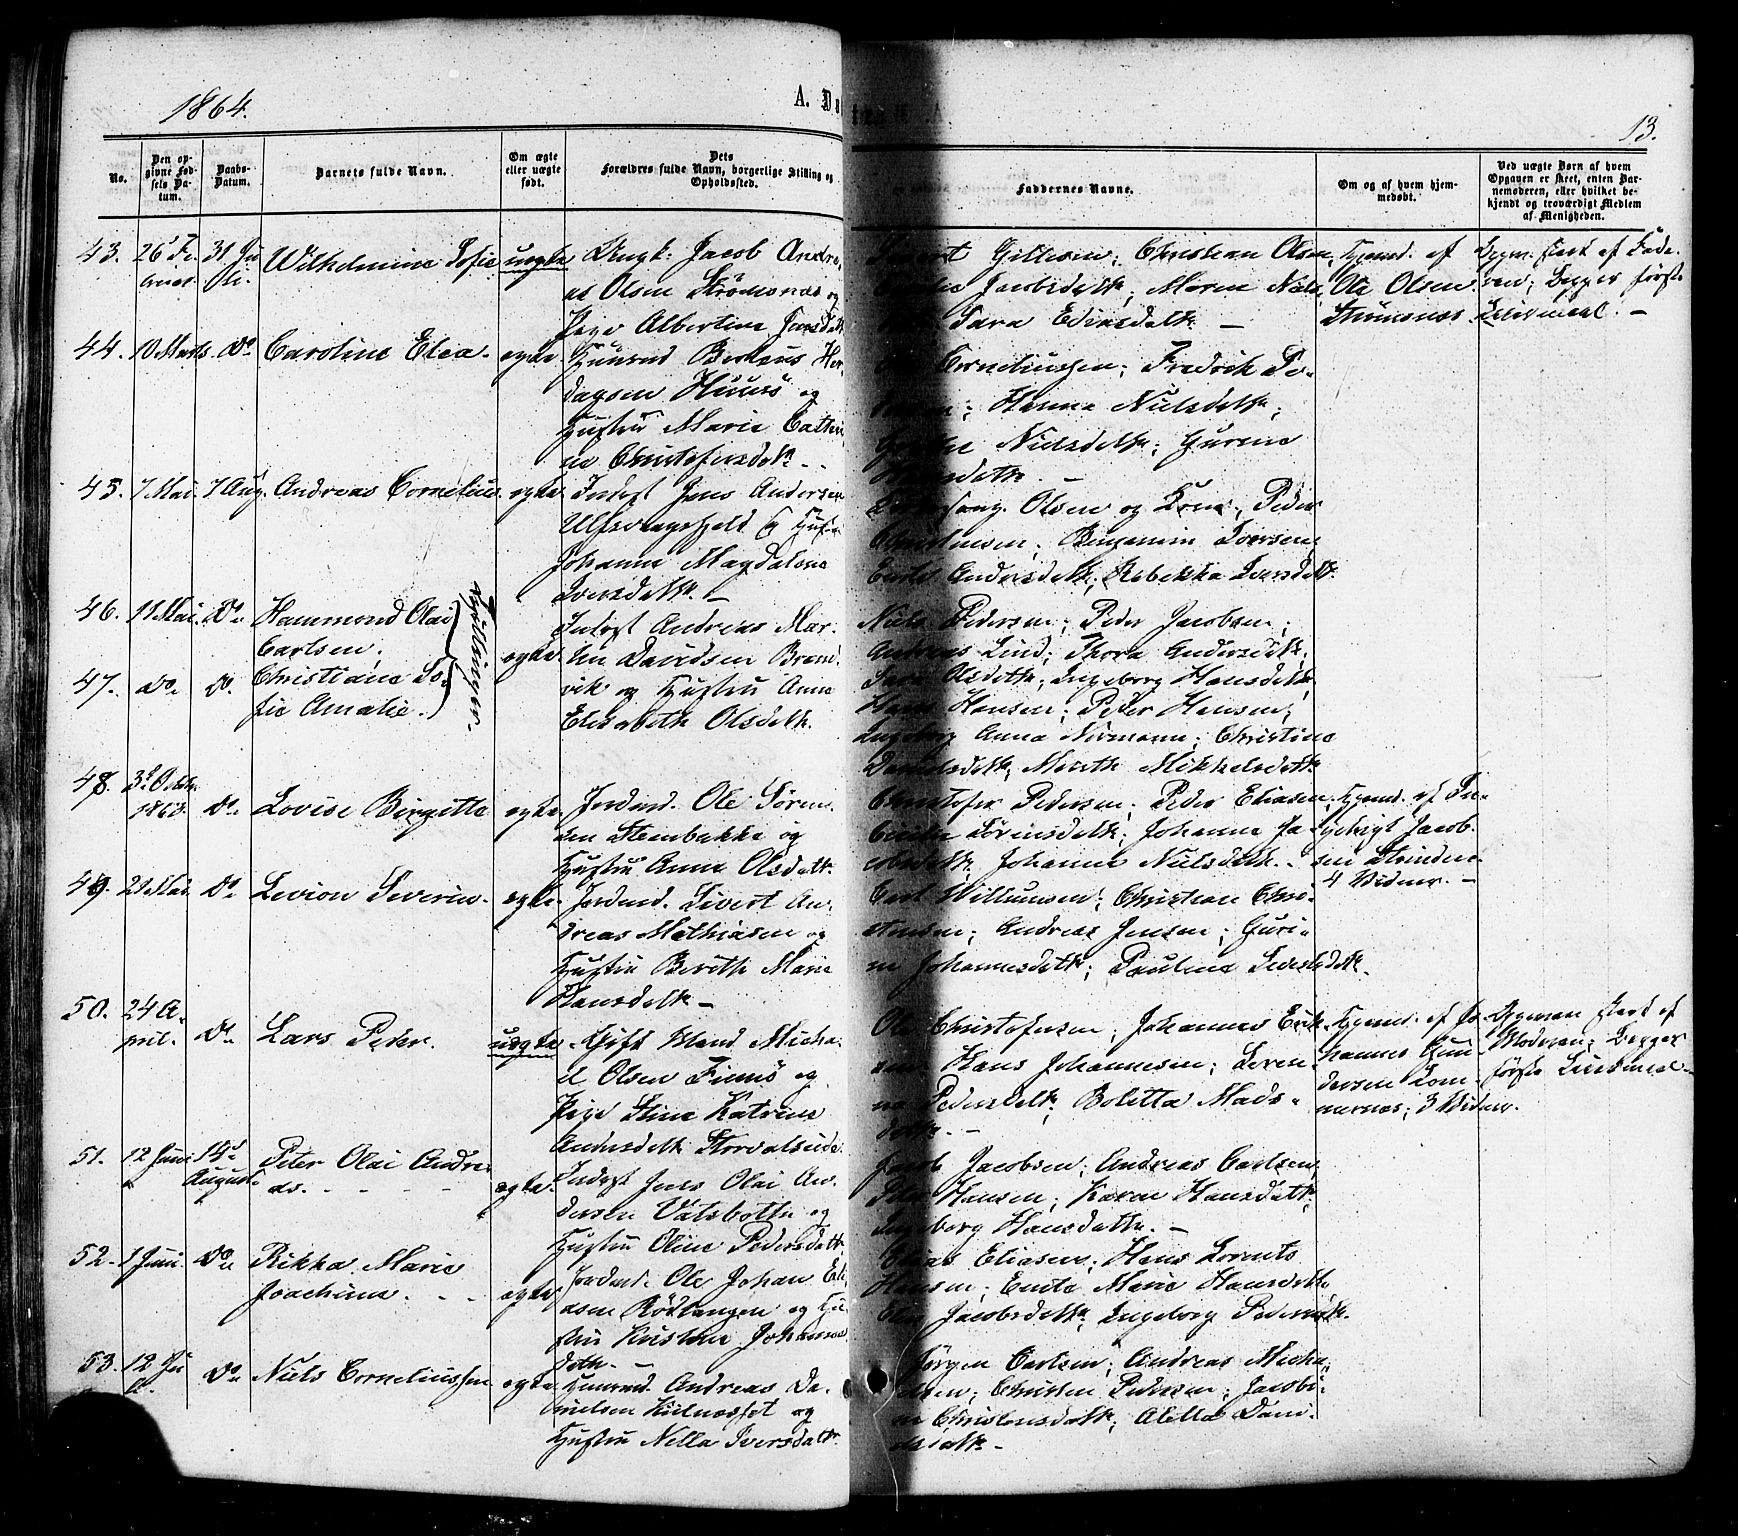 1864.
A. Dø
13.
No.
Den op-
givne Fød-
sels Da-
tum.
Daabs-
Datum.
Barnets fulde Navn.
Om ægte
eller uægte
født.
Dets
Forældres fulde Navn, borgerlige Stilling og
Opholdssted.
Faddernes Navne.
Om og af hvem hjem-
medøbt.
Ved uægte Børn af hvem
Opgaven er skeet, enten Bar-
nemoderen, eller hvilket be-
kjendt og troværdigt Medlem
af Menigheden.
43. 26' Fe
bruar
31 Ju
li.
Wilhelmine Sofie
uægte
Ungk: Jacob Andre,
as Olsen Strømsnæs og
Pige Albertine Jensdatt.
Gillesen; Christian Olsen;
Jacobsdatt; Maren Niels
Sara Eliasdatt. —
Hjemd. af
Ole Olsen
Strømsnæs.
Opgiv. skeet af Fade-
ren; Begges første
Leiermaal. —
44. 10 Marts. Do
Caroline Elea.
ægte
Huusmd Berteus Her,
dagsen Huus og
Hustru Marie Cathri
ne Christofersdatt. -
Corneliussen; Fredrik Pe-
dersen; Hanna Nielsdatt;
Nielsdatt; Gurine
datt. —
45. 7 Mai. 7 Aug.
Andreas Cornelius.
ægte
Inderst Jens Andersen
Ulfsvaagskjeld og Hust.
Johanna Magdalena
Iversdatt. —
Olsen og Kone; Peder
Christensen; Benjamin Iversen;
Andersdatt; Rebekka Iversdatt.
46. 11 Mai. Do
Hammond Olai
Carlsen;
47. Do. Do.
Christiane So-
fie Amalie.
Tvillinger.
ægte
Inderst Andreas Mar-
tin Davidsen Brand-
vik og Hustru Anna
Elisabeth Olsdatt.
Niels Pedersen; Peder Jacobsen;
Andreas Lind; Thora Andersdatt;
Sara Olsdatt; Ingeborg Hansdatt;
Hans Hansen; Peder Hansen;
Ingeborg Anna Normann; Christine
Danielsdatt; Marith Mikkelsdatt
48. 3d Octbr.
1863.
Do
Lovise Birgitta
ægte
Jordmd. Ole Søren
sen Steenbakke og
Hustru Anna Olsdatt.
Christofer Pedersen; Peder Eliasen
Sørensdatt; Johanna Ja
cobsdatt; Johanna Nielsdatt. -
Hjemd. af In-
gebrigt Jacob-
sen Strinden.
4 Vidner. —
49. 21 Mai.
Do
Levion Severin.
ægte
Jordmd. Sivert An-
dreas Mathiasen og
Hustru Berith Marie
Hansdatt —
Carl Willumsen; Christian Chri-
stensen; Andreas Jensen; Guri-
ne Johannesdatt; Pauline Sivertsdatt.
50. 24 A-
pril.
Do
Lars Peder.
uægte
Gift Mand Micha-
el Olsen Finnø og
Pige Stine Katrine
Andersdatt Stordalsude
Ole Christofersen; Johannes Erik-
sen; Hans Johannesen; Loren-
na Pedersdatt; Boletta Mads-
datt. —
Hjemd. af Jo-
hannes Gun
dersen Lom
mernæs; 3 Vidner.
Opgaven skeet af
Moderen; Begges
første Leiermaal —
51. 12 Juni
14d
August.
Peter Olai Andre-
as. - - - -
ægte.
Inderst Jens Olai An-
dersen Vatsbotten og
Hustru Oline Pedersdatt.
Jacob Jacobsen; Andreas Carlsen;
Hansen; Karen Hansdatt;
Ingeborg Hansdatt. —
52. 1 Juni. Do
Rikka Marie
Joachima. - -
ægte
Jordmd. Ole Johan Eli-
asen Rødtangen og Hu
stru Kristine Johannes
datt. —
Elias Eliasen; Hans Lorents
Hansen; Marie Hansdatt;
Jacobsdatt; Ingeborg Pedersdatt.
53. 12 Ju
li.
Do
Niels Corneliussen
ægte
Huusmd. Andreas Da-
nielsen Kulnæsset og
Hustru Nella Iversdatt.
Jørgen Carlsen; Andreas Micha-
elsen; Christen Pedersen; Jacobi-
ne Christensdatt; Aletta Dani-
elsdatt. -